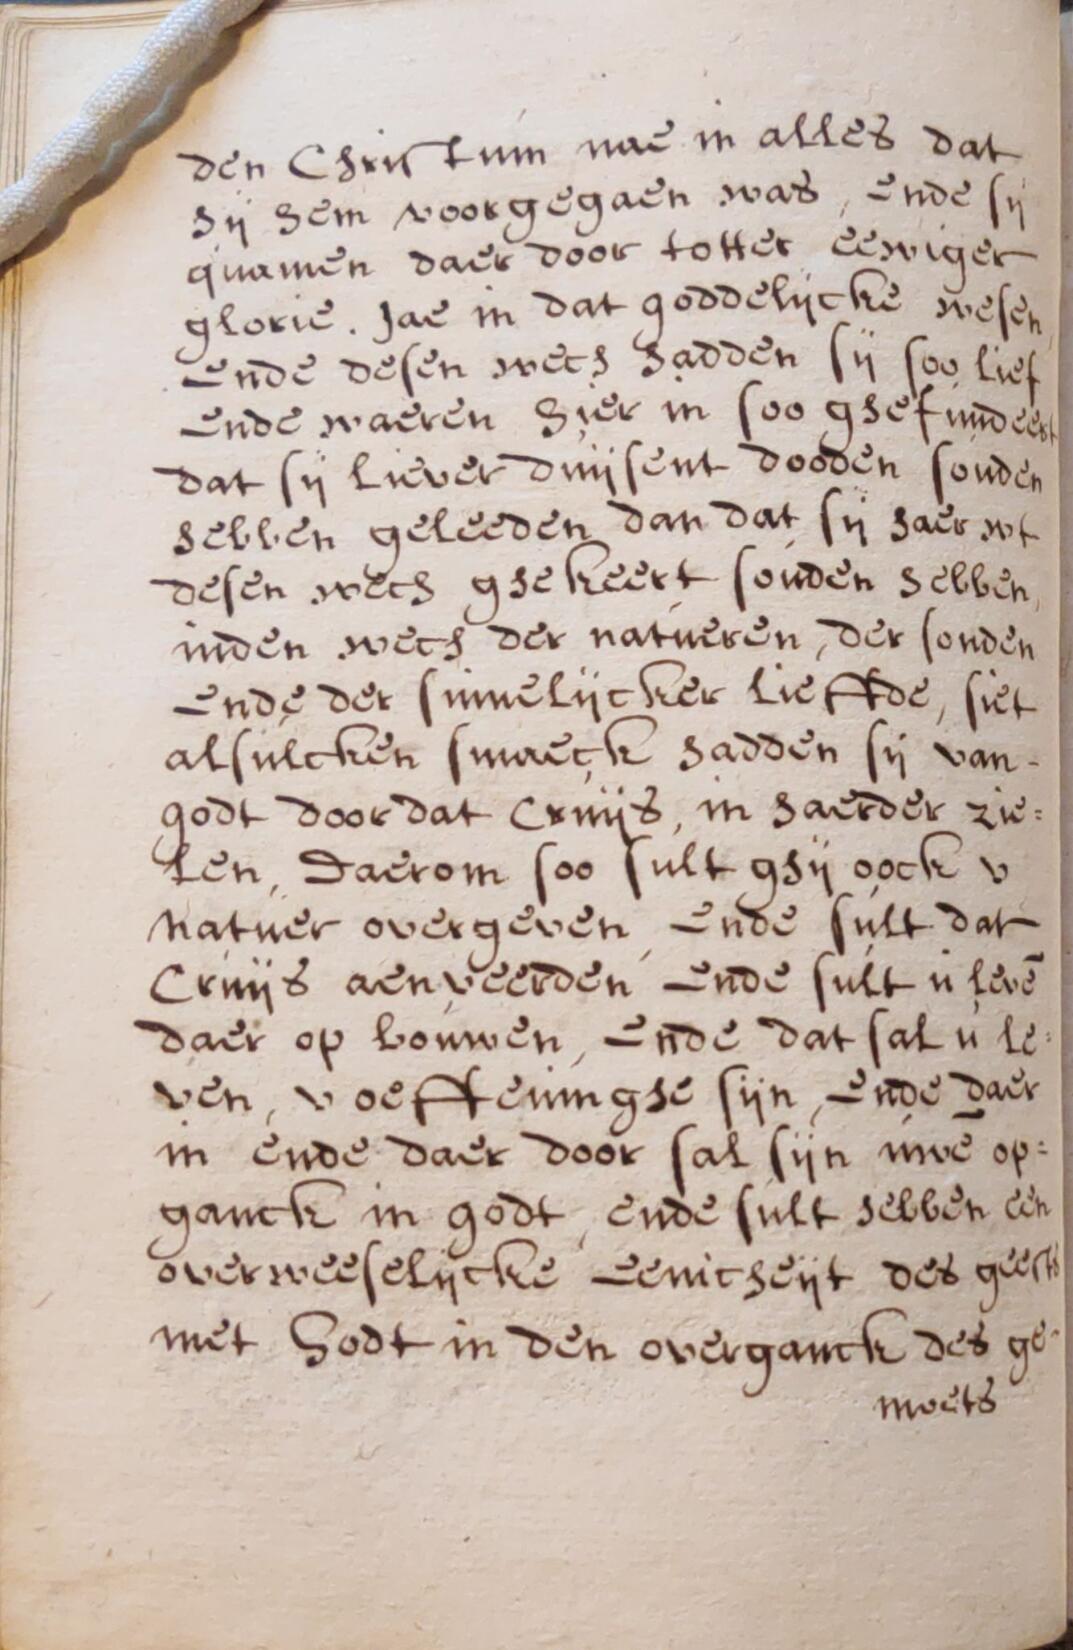 den Christum nae in alles dat
hij hem voorgegaen was, ende sij
quamen daer door totter eewiger
glorie. Jae in dat goddelijcke wesen,
Ende desen wech hadden sij soo lief
Ende waeren hier in soo ghefundeert
dat sij liever duijsent dooden souden
hebben geleeden dan dat sij haer wt
desen wech ghekeert souden hebben,
inden wech der natueren, der sonden
Ende der sinnelijcker lieffde, siet
alsulcken smaeck hadden sij van-
godt door dat Cruijs, in haerder zie=
len, Daerom soo sult ghij oock v
Natuer overgeven, Ende sult dat
Cruijs aenveerden Ende sult u levē
daer op bouwen, Ende dat sal u le=
ven, v oeffeninghe sijn, Ende daer
in ende daer door sal sijn uwē op=
ganck in godt, ende sult hebben een
overweeselijcke Eenicheijt des geests
met Godt in den overganck des ge-
moets